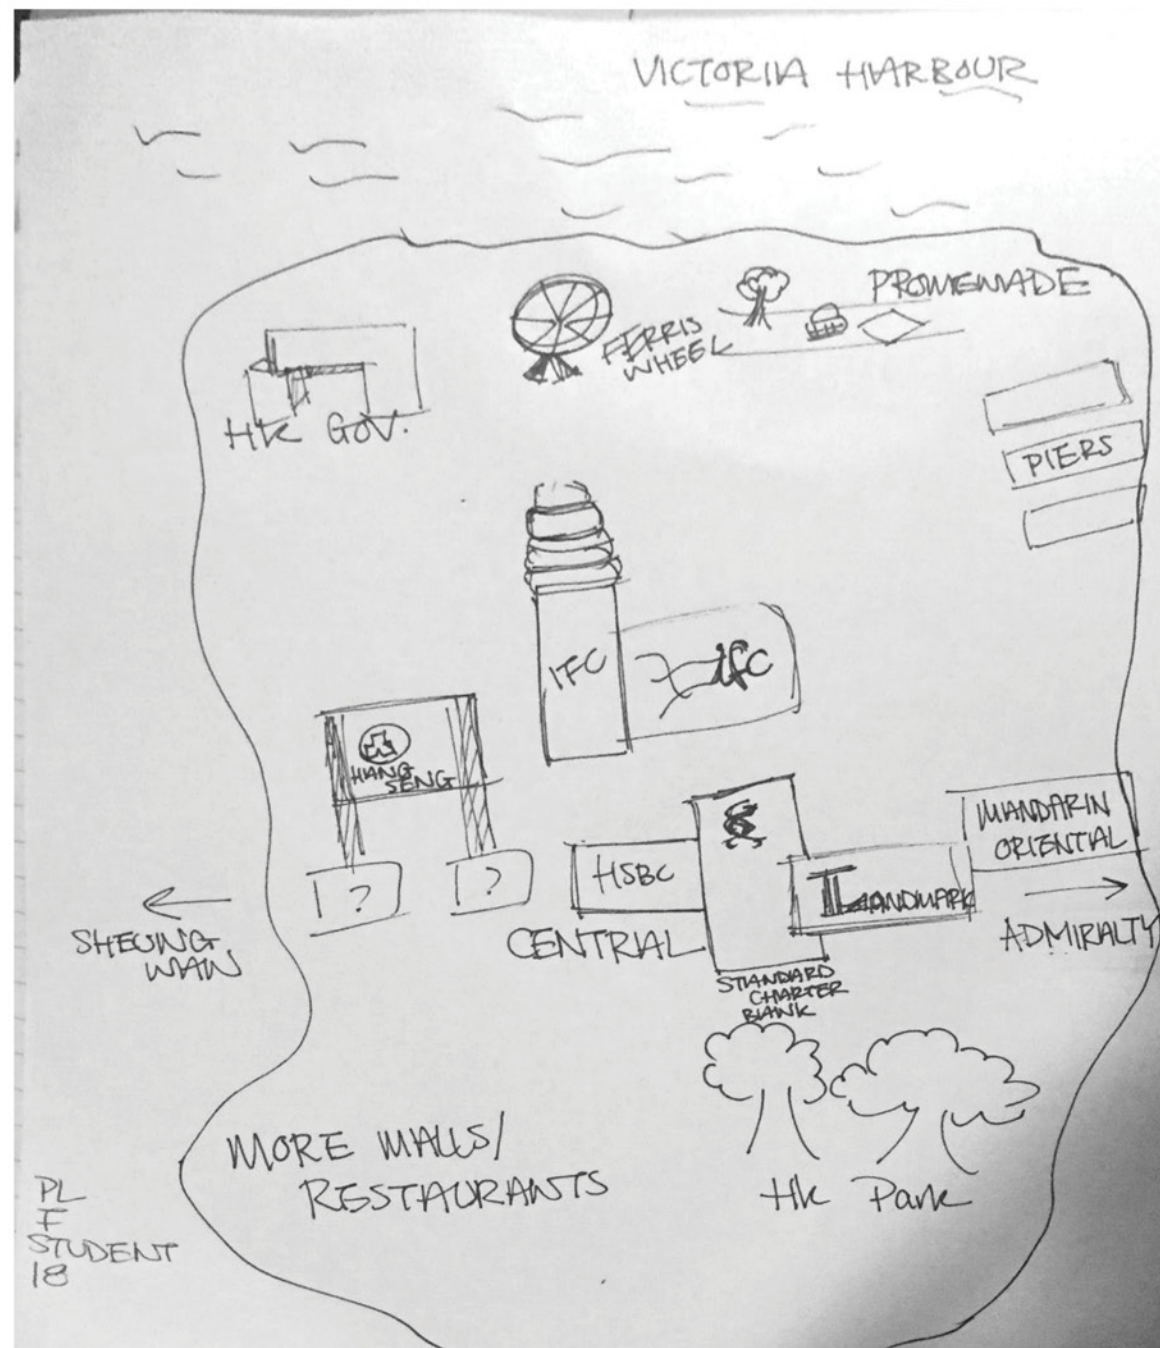 VICTORIA HARBOUR
PROMENADE
FERRIS
WHEEL
HK GOV.
PIERS
IFC
ifc
HANG
SENG
MANDARIN
ORIENTIAL
?
?
HSBC
LANDMARK
SHEUNG
WAN
CENTRAL
ADMIRALTY
STANDARD
CHARTER
BANK
MORE MALLS/
RESTAURANTS
HK Park
PL
F
STUDENT
18